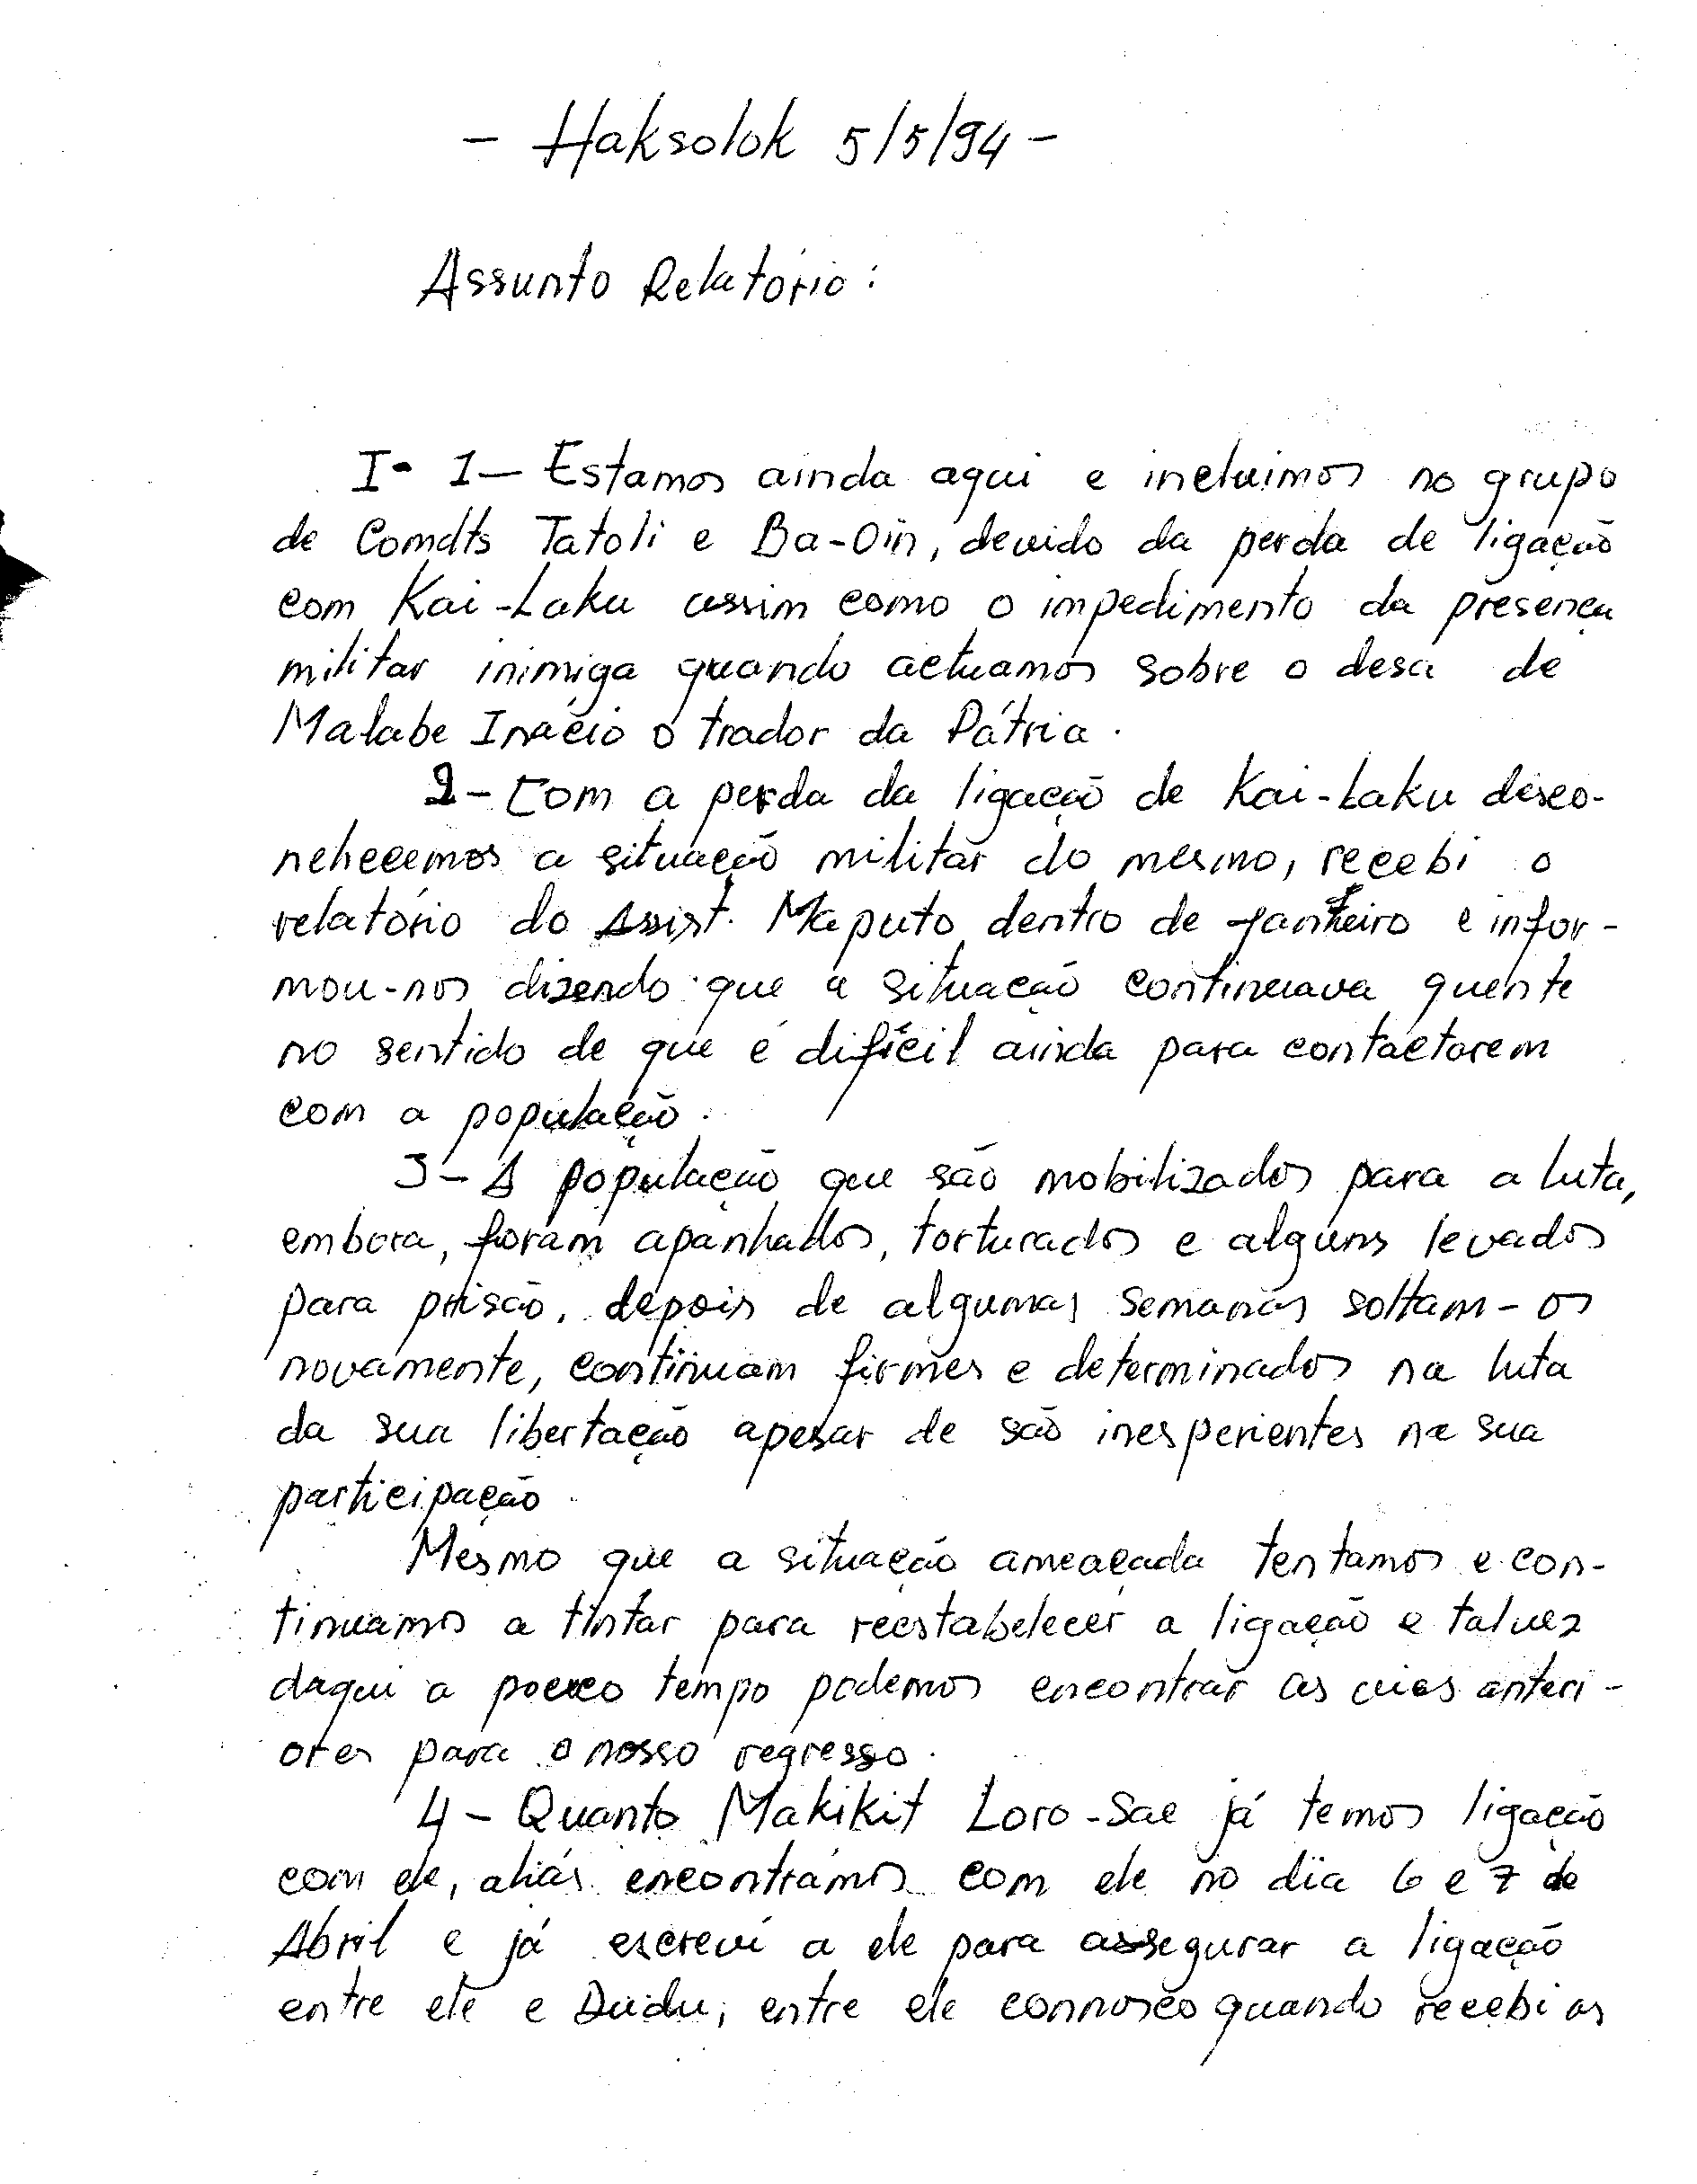 - Haksolok 5/5/94 -
Assunto Relatório:
I- 1- Estamos ainda aqui e incluimos no grupo
de Comdts Tatoli e Ba-Oin, devido da perda de ligação
com Kai-Laku assim como o impedimento da presença
militar inimiga quando actuamos sobre o desa de
Malabe Inácio o trador da Pátria.
2- Com a perda da ligação de Kai-Laku desco-
nhecemos a situação militar do mesmo, recebi o
relatório do Assist. Maputo dentro de e infor-
mou-nos dizendo que a situação continuava quente
no sentido de que é difícil ainda para contactarem
com a população.
3- A população que são mobilizados para a luta,
embora, foram apanhados, torturados e alguns levados
para prisão, depois de algumas semanas soltam-os
novamente, continuam firmes e determinados na luta
da sua libertação apesar de são inesperientes na sua
participação.
Mesmo que a situação ameaçada tentamos e con-
tinuamos a tintar para reestabelecer a ligação e talvez
daqui a pouco tempo podemos encontrar as vias anteri-
ores para o nosso regresso.
4- Quanto Makikit Loro-Sae já temos ligação
com ele, aliás encontrámos com ele no dia 6 e 7 de
Abril e já escrevi a ele para assegurar a ligação
entre ele e Dudu, entre ele connosco quando recebi as